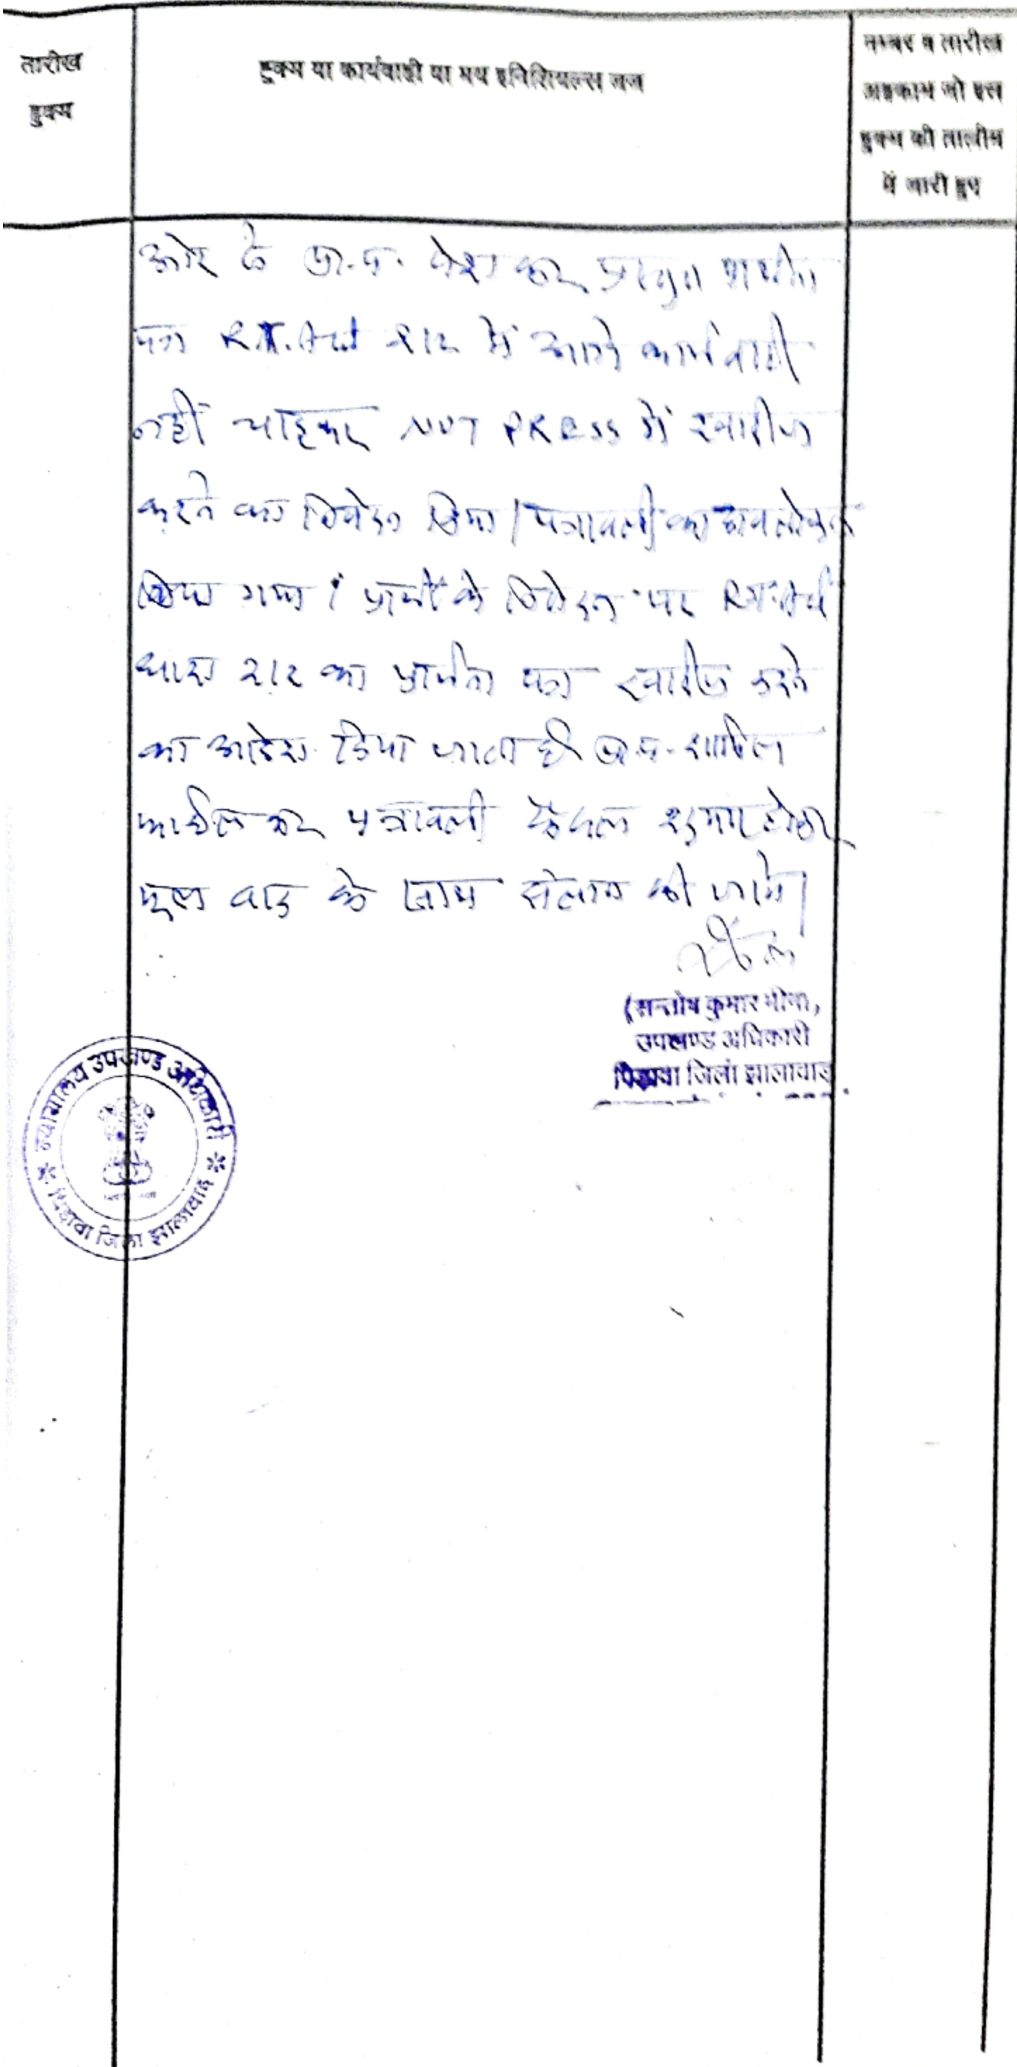 तारीख
हुक्म
हुक्म या कार्यवाही या मय इनिशियल्स जज
नम्बर व तारीख
अहकाम जो इस
हुक्म की तालीम
में जारी हुए
ओर से प्रा.प. पेश कर प्रस्तुत प्रार्थना
पत्र R.T.Act 212 में आगे कार्यवाही
नहीं चाहकर NOT PRESS में खारीज
करने का निवेदन किया। पत्रावली का अवलोकन
किया गया। प्रार्थी के निवेदन पर R.T.Act
धारा 212 का प्रार्थना पत्र खारीज करने
का आदेश दिया जाता है। प्रा.प. शामिल
कर पत्रावली फैसल शुमार होकर
मूल वाद के साथ संलग्न की जावे।
(सन्तोष कुमार मीना)
उपखण्ड अधिकारी
पिड़ावा जिला झालावाड़
न्यायालय उपखण्ड अधिकारी
पिड़ावा जिला झालावाड़